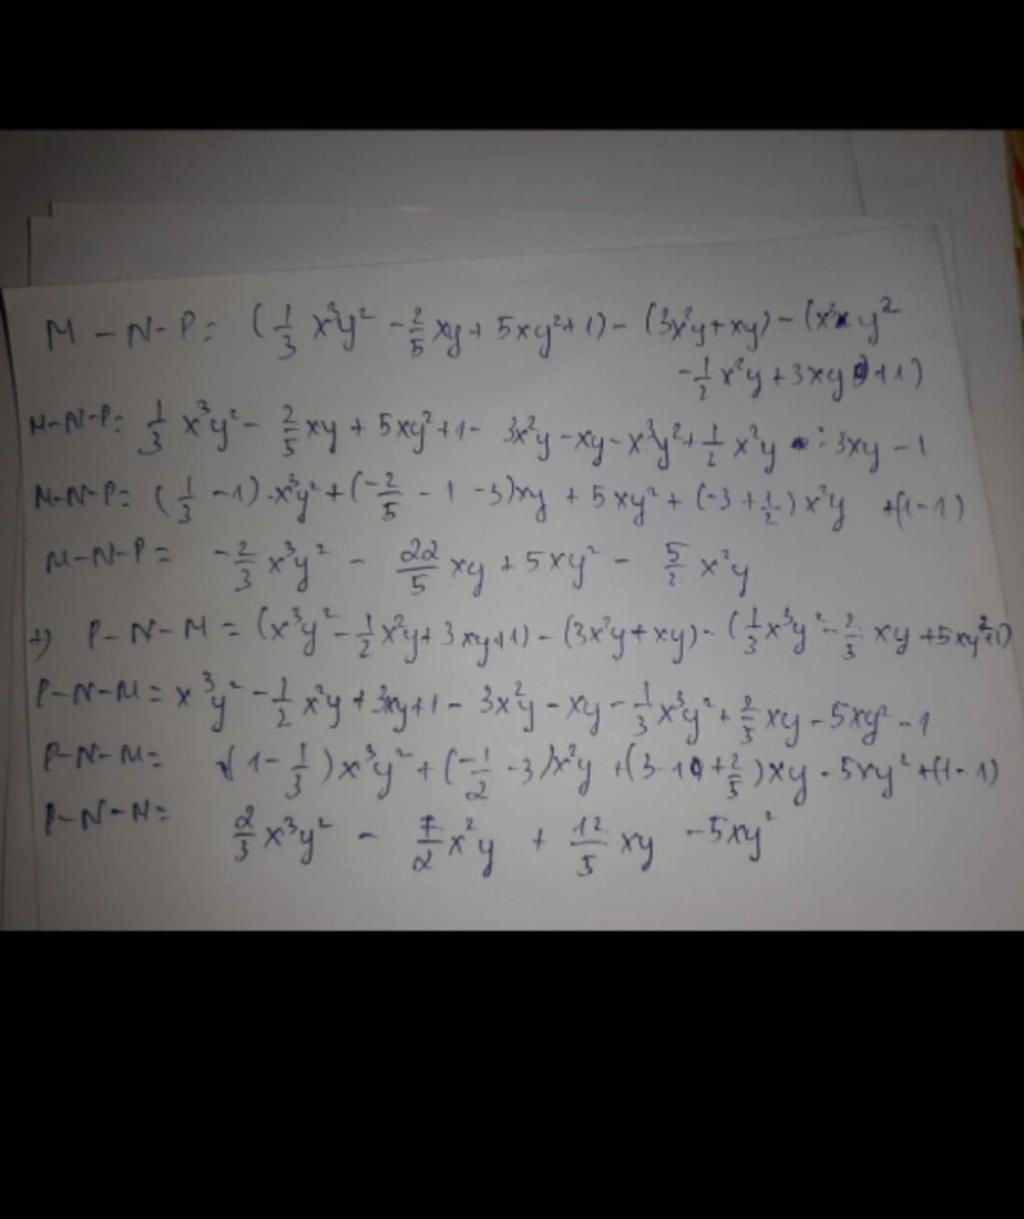 M - N - P = (1/3 x³y² - 2/5 xy + 5xy² + 1) - (3x²y + xy) - (x³ y²
- 1/2 x²y + 3xy + 1)
M-N-P = 1/3 x³y² - 2/5 xy + 5xy² + 1 - 3x²y - xy - x³y² + 1/2 x²y - 3xy - 1
M-N-P = (1/3 - 1) . x³y² + (-2/5 - 1 - 3)xy + 5xy² + (-3 + 1/2) x²y + (1 - 1)
M-N-P = -2/3 x³y² - 22/5 xy + 5xy² - 5/2 x²y
+) P - N - M = (x³y² - 1/2 x²y + 3xy + 1) - (3x²y + xy) - (1/3 x³y² - 2/5 xy + 5xy² + 1)
P-N-M = x³y² - 1/2 x²y + 3xy + 1 - 3x²y - xy - 1/3 x³y² + 2/5 xy - 5xy² - 1
P-N-M = (1 - 1/3) x³y² + (-1/2 - 3)x²y + (3 - 1 + 2/5)xy - 5xy² + (1 - 1)
P-N-M = 2/3 x³y² - 7/2 x²y + 12/5 xy - 5xy²